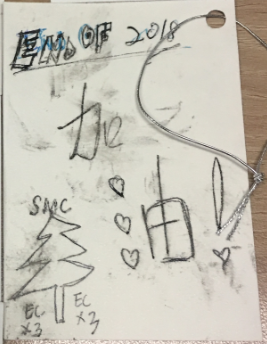 END OF 2018
加
油!
SMC
EC EC
x3 x3